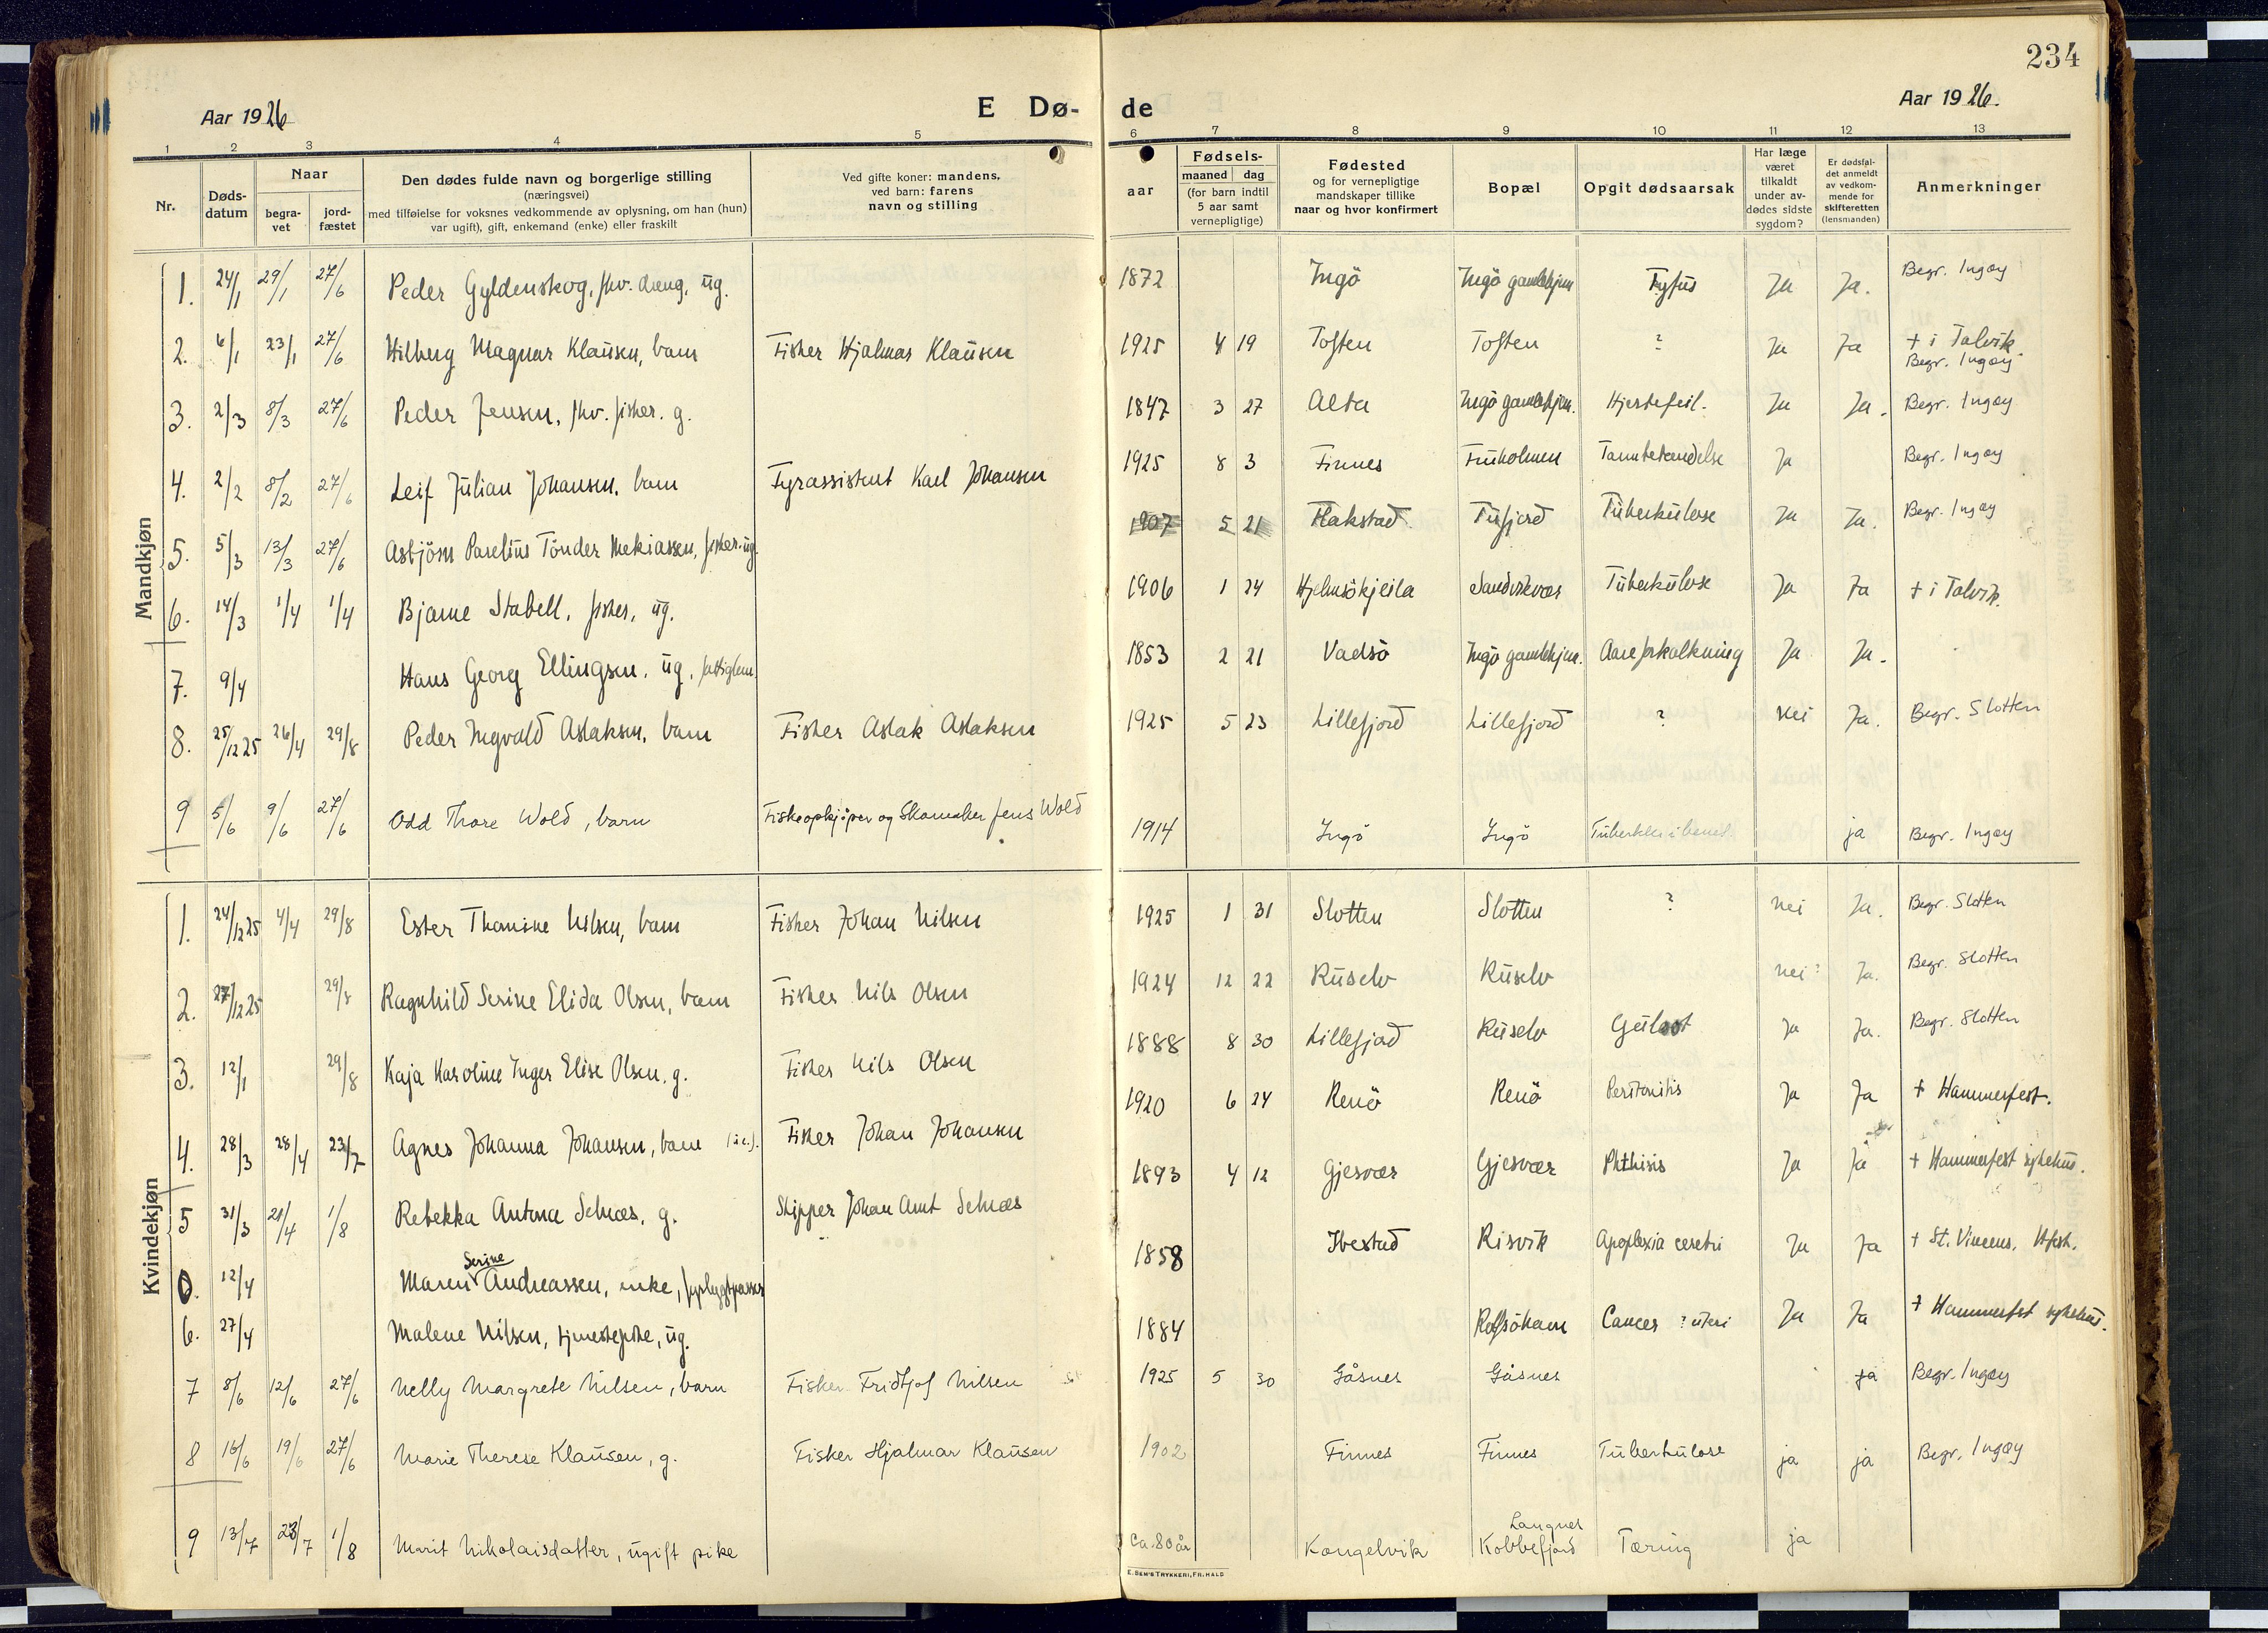 234
Aar 1926
E Dø-
de
Aar 1926.
1 2 3 4 5 6 7 8 9 10 11 12 13
Nr.
Døds-
datum
Naar
begra-
vet
jord-
fæstet
Den dødes fulde navn og borgerlige stilling
(næringsvei)
med tilføielse for voksnes vedkommende av oplysning, om han (hun)
var ugift), gift, enkemand (enke) eller fraskilt
Ved gifte koner: mandens,
ved barn: farens
navn og stilling
aar
Fødsels-
maaned dag
(for barn indtil
5 aar samt
vernepligtige)
Fødested
og for vernepligtige
mandskaper tillike
naar og hvor konfirmert
Bopæl
Opgit dødsaarsak
Har læge
været
tilkaldt
under av-
dødes sidste
sygdom?
Er dødsfal-
det anmeldt
av vedkom-
mende for
skifteretten
(lensmanden)
Anmerkninger
Mandkjøn
1. 24/1 29/1 27/6 Peder Gyldenskog, fhv. dreng, ug. 1872 Ingö Ingö gamlehjem Tyfus Ja Ja. Begr. Ingøy
2. 6/1 23/1 27/6 Hilberg Magnar Klausen, barn Fisker Hjalmar Klausen 1925 4 19 Toften Toften ? Ja Ja + i Talvik.
Begr. Ingøy
3. 2/3 8/3 27/6 Peder Jensen, fhv. fisker. g. 1847 3 27 Alta Ingö gamlehjem. Hjertefeil. Ja Ja. Begr. Ingøy
4. 2/2 8/2 27/6 Leif Julian Johansen, barn Fyrassistent Karl Johansen 1925 8 3 Finnes Fruholmen Tannbetendelse Ja Begr. Ingøy
5. 5/3 13/3 27/6 Asbjörn Parelius Tönder Mekiassen, fisker. ug. 1907 5 21 Flakstad Tufjord Tuberkulose Ja Ja. Begr. Ingøy
6. 14/3 1/4 1/4 Bjarne Stabell, fisker, ug. 1906 1 24 Hjelmsökjeila Sandvikvær Tuberkulose Ja Ja + i Talvik.
7. 9/4 Hans Georg Ellingsen, ug, fattiglem. 1853 2 21 Vadsö Ingö gamlehjem. Aareforkalkning Ja Ja.
8. 25/12 25 26/4 29/8 Peder Ingvald Aslaksen, barn Fisker Aslak Aslaksen 1925 5 23 Lillefjord Lillefjord ? Nei Ja. Begr. Slotten
9 5/6 9/6 27/6 Odd Thore Wold, barn Fiskeopkjøper og Skomaker Jens Wold 1914 Ingö Ingö ja Begr. Ingøy
Kvindekjøn
1. 24/12 25 4/4 29/8 Ester Thomine Nilsen, barn Fisker Johan Nilsen 1925 1 31 Slotten Slotten ? nei Ja. Begr. Slotten
2. 27/12 25 29/8 Ragnhild Serine Elida Olsen, barn Fisker Nils Olsen 1924 12 22 Ruselv Ruselv nei Ja. Begr. Slotten
3. 12/1 29/8 Kaja Karoline Inger Elise Olsen, g. Fisker Nils Olsen 1888 8 30 Lillefjord Ruselv Gulsot Ja Ja. Begr. Slotten
4. 28/3 28/4 23/7 Agnes Johanna Johansen, barn Fisker Johan Johansen 1920 6 24 Renö Renö Peritonitis Ja Ja + Hammerfest.
5 31/3 21/4 1/8 Rebekka Antona Selnæs, g. Skipper Johan Arnt Selnæs 1893 4 12 Gjesvær Gjesvær Phthisis Ja Ja + Hammerfest sykehus.
0. 12/4 Maren Serine Andreassen, enke, 1858 Ibestad Risvik Apoplexia cerebri Ja Ja + St. Vincens, Hfest.
6. 27/4 Malene Nilsen, tjenestepike, ug. 1884 Rolfsöhavn Cancer uteri Ja Ja + Hammerfest sykehus.
7 8/6 12/6 27/6 Nelly Margrete Nilsen, barn Fisker Fridtjof Nilsen 1925 5 30 Gåsnes Gåsnes Ja Begr. Ingøy
8 16/6 19/6 27/6 Marie Therese Klausen, g. Fisker Hjalmar Klausen 1902 Finnes Finnes Tuberkulose ja ja Begr. Ingøy
9 13/7 23/7 1/8 Marit Nikolaisdatter, ugift pike ca. 80 år Kongelvik Langnes
Kobbefjord Tæring ja
E. SEM'S TRYKKERI, FR. HALD